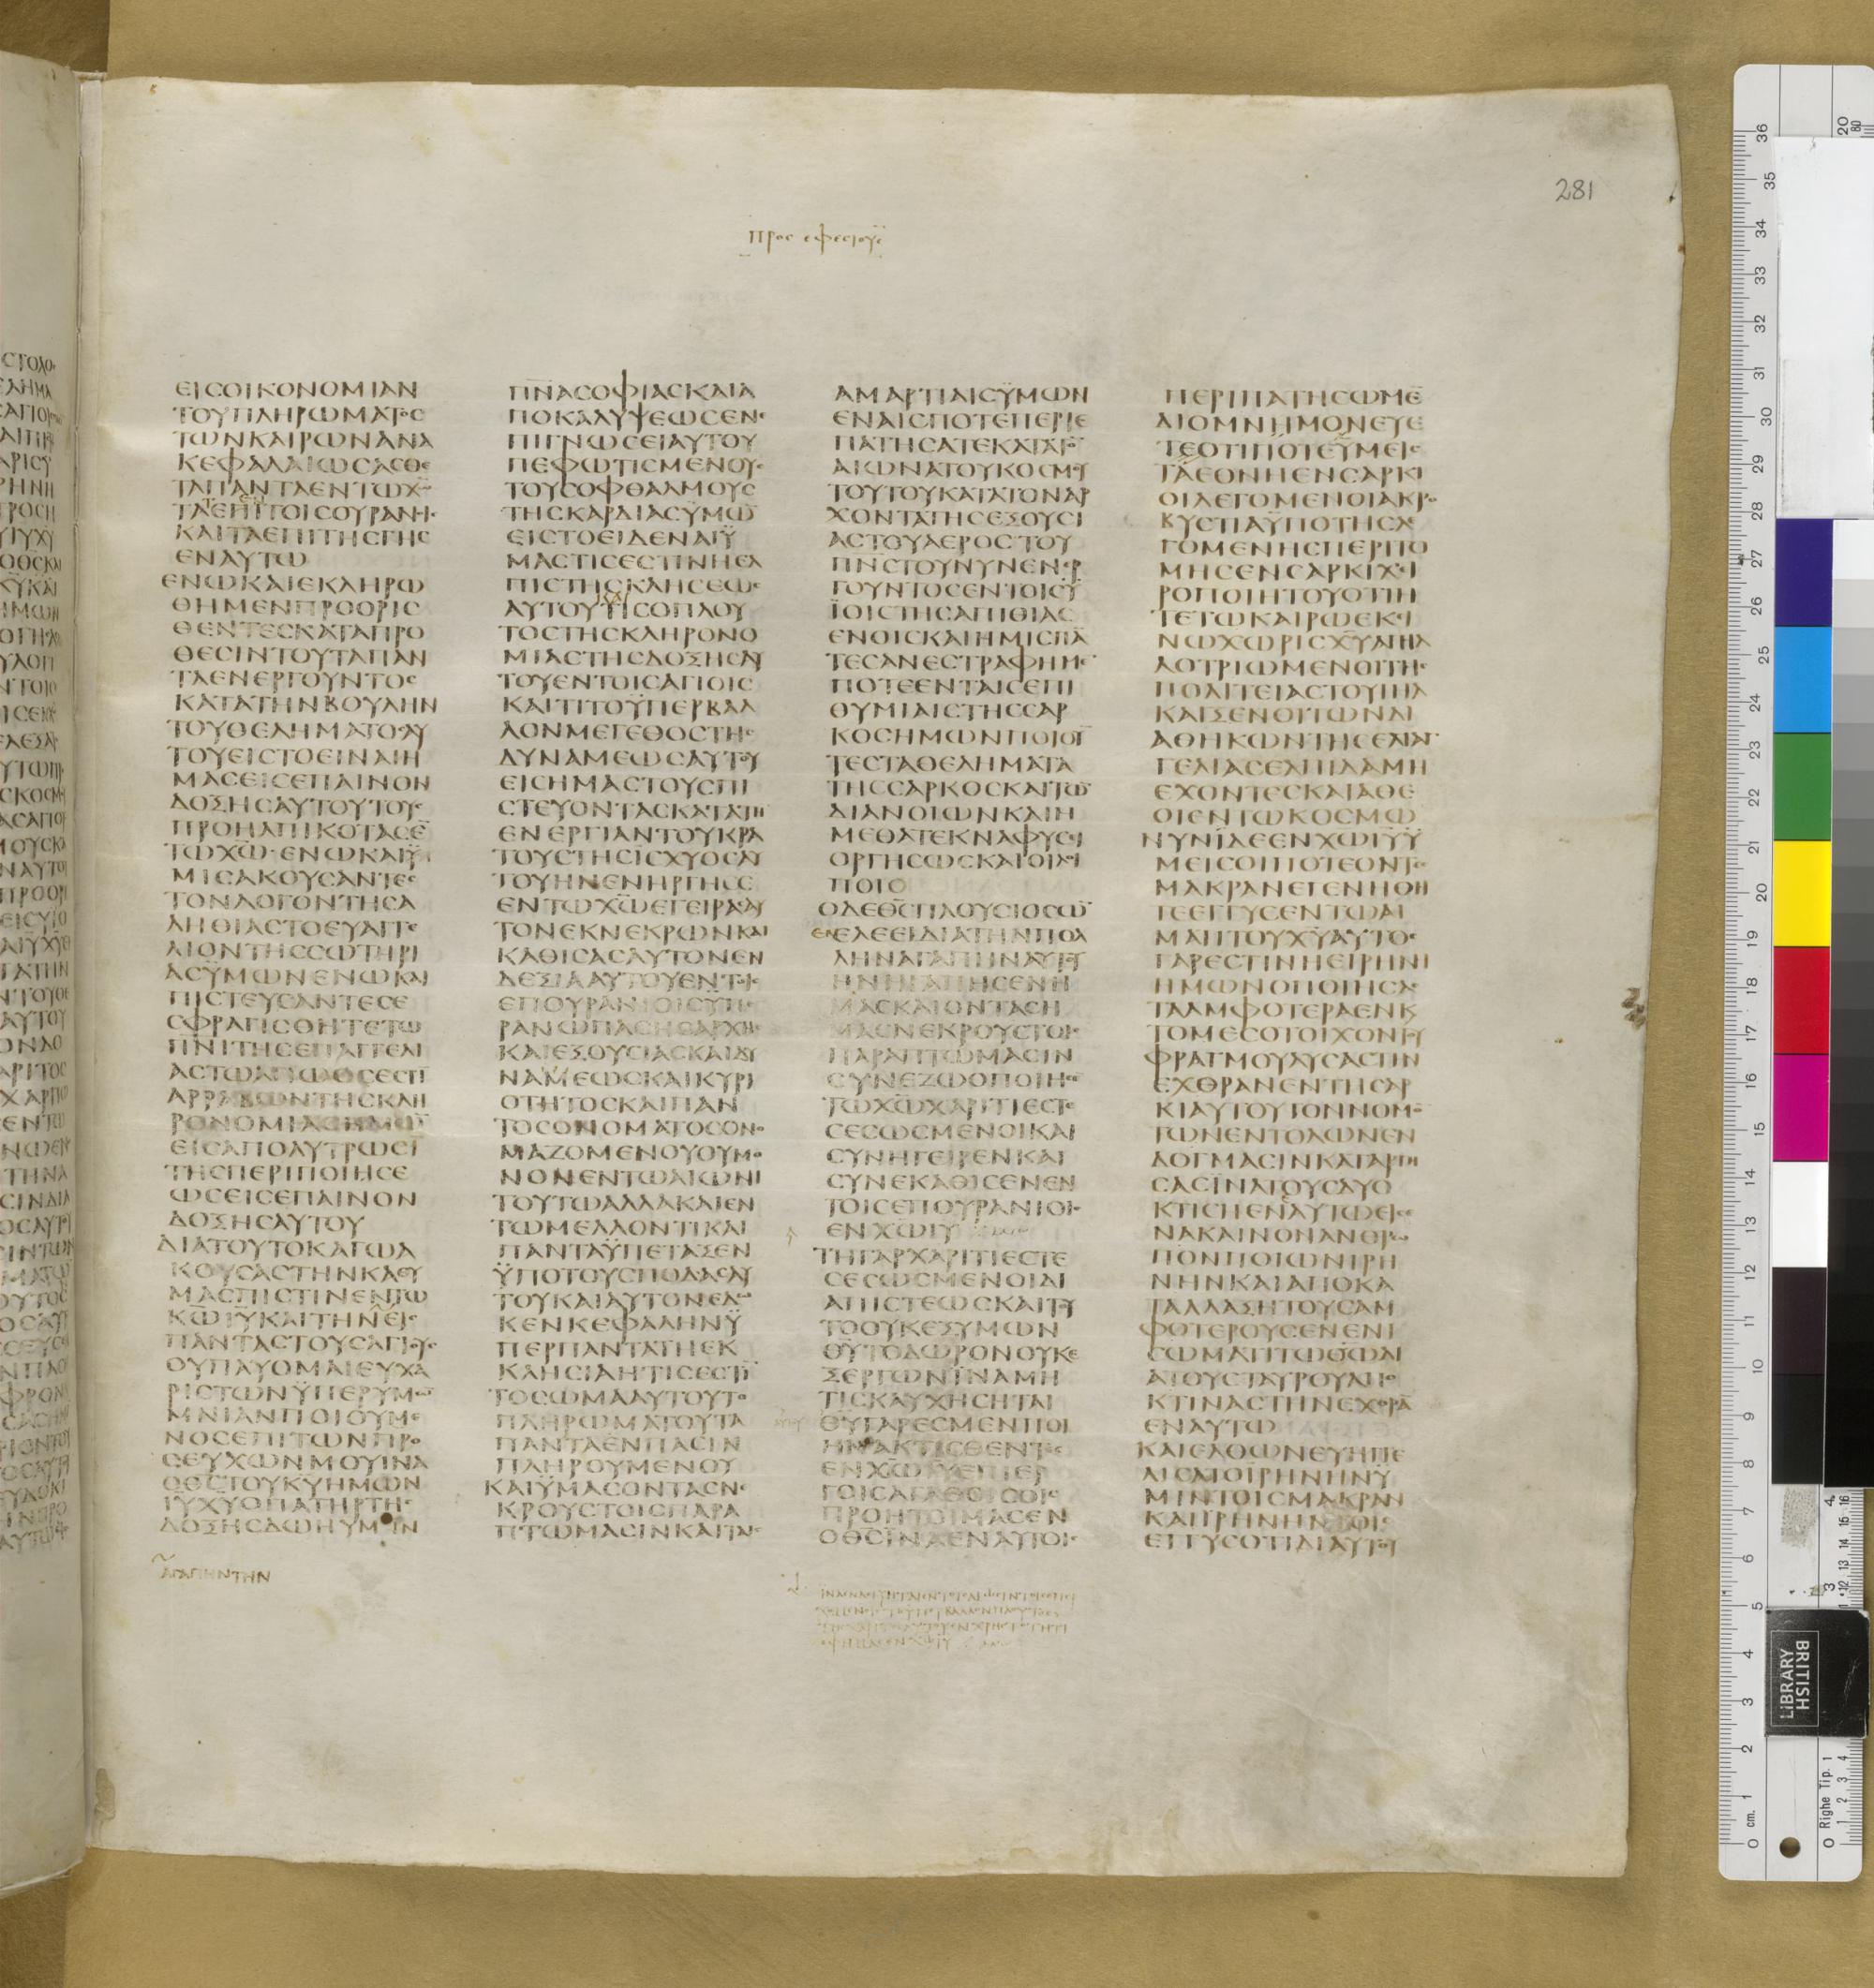 281
Προς εφεσιους
ΕΙCΟΙΚΟΝΟΜΙΑΝ
ΤΟΥΠΛΗΡΩΜΑΤΟC
ΤΩΝΚΑΙΡΩΝΑΝΑ
ΚΕΦΑΛΑΙΩCΑCΘΕ
ΤΑΠΑΝΤΑΕΝΤΩΧ̅Ω̅
ΤΟΙCΟΥΡΑΝΟΙC
ΚΑΙΤΑΕΠΙΤΗCΓΗC
ΕΝΑΥΤΩ
ΕΝΩΚΑΙΕΚΛΗΡΩ
ΘΗΜΕΝΠΡΟΟΡΙC
ΘΕΝΤΕCΚΑΤΑΠΡΟ
ΘΕCΙΝΤΟΥΤΑΠΑΝ
ΤΑΕΝΕΡΓΟΥΝΤΟC
ΚΑΤΑΤΗΝΒΟΥΛΗΝ
ΤΟΥΘΕΛΗΜΑΤΟCΑΥ
ΤΟΥΕΙCΤΟΕΙΝΑΙΗ
ΜΑCΕΙCΕΠΑΙΝΟΝ
ΔΟΞΗCΑΥΤΟΥΤΟΥC
ΠΡΟΗΛΠΙΚΟΤΑCΕ̅
ΤΩΧ̅Ω̅ΕΝΩΚΑΙΫ
ΜΙCΑΚΟΥCΑΝΤΕC
ΤΟΝΛΟΓΟΝΤΗCΑ
ΛΗΘΙΑCΤΟΕΥΑΓΓΕ
ΛΙΟΝΤΗCCΩΤΗΡΙ
ΑCΫΜΩΝΕΝΩΚΑΙ
ΠΙCΤΕΥCΑΝΤΕCΕ
CΦΡΑΓΙCΘΗΤΕΤΩ
Π̅Ν̅Ι̅ΤΗCΕΠΑΓΓΕΛΙ
ΑCΤΩΑΓΙΩΟCΕCΤΙ̅
ΑΡΡΑΒΩΝΤΗCΚΛΗ
ΡΟΝΟΜΙΑCΗΜΩ̅
ΕΙCΑΠΟΛΥΤΡΩCΙ
ΤΗCΠΕΡΙΠΟΙΗCΕ
ΩCΕΙCΕΠΑΙΝΟΝ
ΔΟΞΗCΑΥΤΟΥ
ΔΙΑΤΟΥΤΟΚΑΓΩΑ
ΚΟΥCΑCΤΗΝΚΑΘΥ
ΜΑCΠΙCΤΙΝΕΝΤΩ
Κ̅Ω̅Ι̅Υ̅ΚΑΙΤΗΝΕΙC
ΠΑΝΤΑCΤΟΥCΑΓΙΟΥC
ΟΥΠΑΥΟΜΑΙΕΥΧΑ
ΡΙCΤΩΝΫΠΕΡΥΜΩ̅
ΜΝΙΑΝΠΟΙΟΥΜΕ
ΝΟCΕΠΙΤΩΝΠΡΟ
CΕΥΧΩΝΜΟΥΙΝΑ
ΟΘ̅C̅ΤΟΥΚ̅Υ̅ΗΜΩΝ
Ι̅Υ̅Χ̅Υ̅ΟΠΑΤΗΡΤΗC
ΔΟΞΗCΔΩΗΥΜΙΝ
ΑΓΑΠΗΝΤΗΝ
Π̅Ν̅Α̅CΟΦΙΑCΚΑΙΑ
ΠΟΚΑΛΥΨΕΩCΕΝΕ
ΠΙΓΝΩCΕΙΑΥΤΟΥ
ΠΕΦΩΤΙCΜΕΝΟΥC
ΤΟΥCΟΦΘΑΛΜΟΥC
ΤΗCΚΑΡΔΙΑCΫΜΩ̅
ΕΙCΤΟΕΙΔΕΝΑΙΫ
ΜΑCΤΙCΕCΤΙΝΗΕΛ
ΠΙCΤΗCΚΛΗCΕΩC
ΑΥΤΟΥΤΙCΟΠΛΟΥ
ΤΟCΤΗCΚΛΗΡΟΝΟ
ΜΙΑCΤΗCΔΟΞΗCΑΥ
ΤΟΥΕΝΤΟΙCΑΓΙΟΙC
ΚΑΙΤΙΤΟΫΠΕΡΒΑΛ
ΛΟΝΜΕΓΕΘΟCΤΗC
ΔΥΝΑΜΕΩCΑΥΤΟΥ
ΕΙCΗΜΑCΤΟΥCΠΙ
CΤΕΥΟΝΤΑCΚΑΤΑΤΗ
ΕΝΕΡΓΙΑΝΤΟΥΚΡΑ
ΤΟΥCΤΗCΙCΧΥΟCΑΥ
ΤΟΥΗΝΕΝΗΡΓΗCΕ
ΕΝΤΩΧ̅Ω̅ΕΓΕΙΡΑCΑΥ
ΤΟΝΕΚΝΕΚΡΩΝΚΑΙ
ΚΑΘΙCΑCΑΥΤΟΝΕΝ
ΔΕΞΙΑΑΥΤΟΥΕΝΤΟΙC
ΕΠΟΥΡΑΝΙΟΙCΥΠΕ
ΡΑΝΩΠΑCΗCΑΡΧΗC
ΚΑΙΕΞΟΥCΙΑCΚΑΙΔΥ
ΝΑΜΕΩCΚΑΙΚΥΡΙ
ΟΤΗΤΟCΚΑΙΠΑΝ
ΤΟCΟΝΟΜΑΤΟCΟΝΟ
ΜΑΖΟΜΕΝΟΥΟΥΜΟ
ΝΟΝΕΝΤΩΑΙΩΝΙ
ΤΟΥΤΩΑΛΛΑΚΑΙΕΝ
ΤΩΜΕΛΛΟΝΤΙΚΑΙ
ΠΑΝΤΑΫΠΕΤΑΞΕΝ
ΫΠΟΤΟΥCΠΟΔΑCΑΥ
ΤΟΥΚΑΙΑΥΤΟΝΕΔΩ
ΚΕΝΚΕΦΑΛΗΝΫ
ΠΕΡΠΑΝΤΑΤΗΕΚ
ΚΛΗCΙΑΗΤΙCΕCΤΙ̅
ΤΟCΩΜΑΑΥΤΟΥΤΟ
ΠΛΗΡΩΜΑΤΟΥΤΑ
ΠΑΝΤΑΕΝΠΑCΙΝ
ΠΛΗΡΟΥΜΕΝΟΥ
ΚΑΙΫΜΑCΟΝΤΑCΝΕ
ΚΡΟΥCΤΟΙCΠΑΡΑ
ΠΤΩΜΑCΙΝΚΑΙΤΑΙC
ΑΜΑΡΤΙΑΙCΫΜΩΝ
ΕΝΑΙCΠΟΤΕΠΕΡΙΕ
ΠΑΤΗCΑΤΕΚΑΤΑΤΟ̅
ΑΙΩΝΑΤΟΥΚΟCΜΟΥ
ΤΟΥΤΟΥΚΑΤΑΤΟΝΑΡ
ΧΟΝΤΑΤΗCΕΞΟΥCΙ
ΑCΤΟΥΑΕΡΟCΤΟΥ
Π̅Ν̅C̅ΤΟΥΝΥΝΕΝΕΡ
ΓΟΥΝΤΟCΕΝΤΟΙCΫ
ΪΟΙCΤΗCΑΠΙΘΙΑC
ΕΝΟΙCΚΑΙΗΜΙCΠΑ̅
ΤΕCΑΝΕCΤΡΑΦΗΜΕ̅
ΠΟΤΕΕΝΤΑΙCΕΠΙ
ΘΥΜΙΑΙCΤΗCCΑΡ
ΚΟCΗΜΩΝΠΟΙΟΥ̅
ΤΕCΤΑΘΕΛΗΜΑΤΑ
ΤΗCCΑΡΚΟCΚΑΙΤΩ̅
ΔΙΑΝΟΙΩΝΚΑΙΗ
ΜΕΘΑΤΕΚΝΑΦΥCΕΙ
ΟΡΓΗCΩCΚΑΙΟΙΛΟΙ
ΠΟΙ
ΟΔΕΘ̅C̅ΠΛΟΥCΙΟCΩ̅
ΕΝΕΛΕΕΙΔΙΑΤΗΝΠΟΛ
ΛΗΝΑΓΑΠΗΝΑΥΤΟΥ
ΗΝΗΓΑΠΗCΕΝΗ
ΜΑCΚΑΙΟΝΤΑCΗ
ΜΑCΝΕΚΡΟΥCΤΟΙC
ΠΑΡΑΠΤΩΜΑCΙΝ
CΥΝΕΖΩΟΠΟΙΗCΕ
ΤΩΧ̅Ω̅ΧΑΡΙΤΙΕCΤΕ
CΕCΩCΜΕΝΟΙΚΑΙ
CΥΝΗΓΕΙΡΕΝΚΑΙ
CΥΝΕΚΑΘΙCΕΝΕΝ
ΤΟΙCΕΠΟΥΡΑΝΙΟΙC
ΕΝΧ̅Ω̅Ι̅Υ̅
ΤΗΓΑΡΧΑΡΙΤΙΕCΤΕ
CΕCΩCΜΕΝΟΙΔΙ
ΑΠΙCΤΕΩCΚΑΙΤΟΥ
ΤΟΟΥΚΕΞΥΜΩΝ
Θ̅Υ̅ΤΟΔΩΡΟΝΟΥΚΕ
ΞΕΡΓΩΝΪΝΑΜΗ
ΤΙCΚΑΥΧΗCΗΤΑΙ
Θ̅Υ̅ΓΑΡΕCΜΕΝΠΟΙ
ΗΜΑΚΤΙCΘΕΝΤΕC
ΕΝΧ̅Ω̅Ι̅Υ̅ΕΠΙΕΡ
ΓΟΙCΑΓΑΘΟΙCΟΙC
ΠΡΟΗΤΟΙΜΑCΕΝ
ΟΘ̅C̅ΙΝΑΕΝΑΥΤΟΙC
ΠΕΡΙΠΑΤΗCΩΜΕ̅
ΔΙΟΜΝΗΜΟΝΕΥΕ
ΤΕΟΤΙΠΟΤΕΫΜΕΙC
ΤΑΕΘΝΗΕΝCΑΡΚΙ
ΟΙΛΕΓΟΜΕΝΟΙΑΚΡΟ
ΒΥCΤΙΑΫΠΟΤΗCΛΕ
ΓΟΜΕΝΗCΠΕΡΙΤΟ
ΜΗCΕΝCΑΡΚΙΧΕΙ
ΡΟΠΟΙΗΤΟΥΟΤΙΗ
ΤΕΤΩΚΑΙΡΩΕΚΕΙ
ΝΩΧΩΡΙCΧ̅Υ̅ΑΠΗΛ
ΛΟΤΡΙΩΜΕΝΟΙΤΗC
ΠΟΛΙΤΕΙΑCΤΟΥΙΗΛ
ΚΑΙΞΕΝΟΙΤΩΝΔΙ
ΑΘΗΚΩΝΤΗCΕΠΑΓ
ΓΕΛΙΑCΕΛΠΙΔΑΜΗ
ΕΧΟΝΤΕCΚΑΙΑΘΕ
ΟΙΕΝΤΩΚΟCΜΩ
ΝΥΝΙΔΕΕΝΧ̅Ω̅Ι̅Υ̅Ϋ
ΜΕΙCΟΙΠΟΤΕΟΝΤΕC
ΜΑΚΡΑΝΕΓΕΝΗΘΗ
ΤΕΕΓΓΥCΕΝΤΩΑΙ
ΜΑΤΙΤΟΥΧ̅Υ̅ΑΥΤΟC
ΓΑΡΕCΤΙΝΗΕΙΡΗΝΗ
ΗΜΩΝΟΠΟΙΗCΑC
ΤΑΑΜΦΟΤΕΡΑΕΝΚ
ΤΟΜΕCΟΤΟΙΧΟΝΤΟΥ
ΦΡΑΓΜΟΥΛΥCΑCΤΗΝ
ΕΧΘΡΑΝΕΝΤΗCΑΡ
ΚΙΑΥΤΟΥΤΟΝΝΟΜΟ̅
ΤΩΝΕΝΤΟΛΩΝΕΝ
ΔΟΓΜΑCΙΝΚΑΤΑΡΓΗ
CΑCΙΝΑΤΟΥCΔΥΟ
ΚΤΙCΗΕΝΑΥΤΩΕΙC
ΝΑΚΑΙΝΟΝΑΝΘΡΩ
ΠΟΝΠΟΙΩΝΙΡΗ
ΝΗΝΚΑΙΑΠΟΚΑ
ΤΑΛΛΑΞΗΤΟΥCΑΜ
ΦΟΤΕΡΟΥCΕΝΕΝΙ
CΩΜΑΤΙΤΩΘ̅Ω̅ΔΙ
ΑΤΟΥCΤΑΥΡΟΥΑΠΟ
ΚΤΙΝΑCΤΗΝΕΧΘΡΑ̅
ΕΝΑΥΤΩ
ΚΑΙΕΛΘΩΝΕΥΗΓΓΕ
ΛΙCΑΤΟΪΡΗΝΗΝΫ
ΜΙΝΤΟΙCΜΑΚΡΑΝ
ΚΑΙΙΡΗΝΗΝΤΟΙC
ΕΓΓΥCΟΤΙΔΙΑΥΤΟΥ
BRITISH
LIBRARY
Righe Tip.
cm.